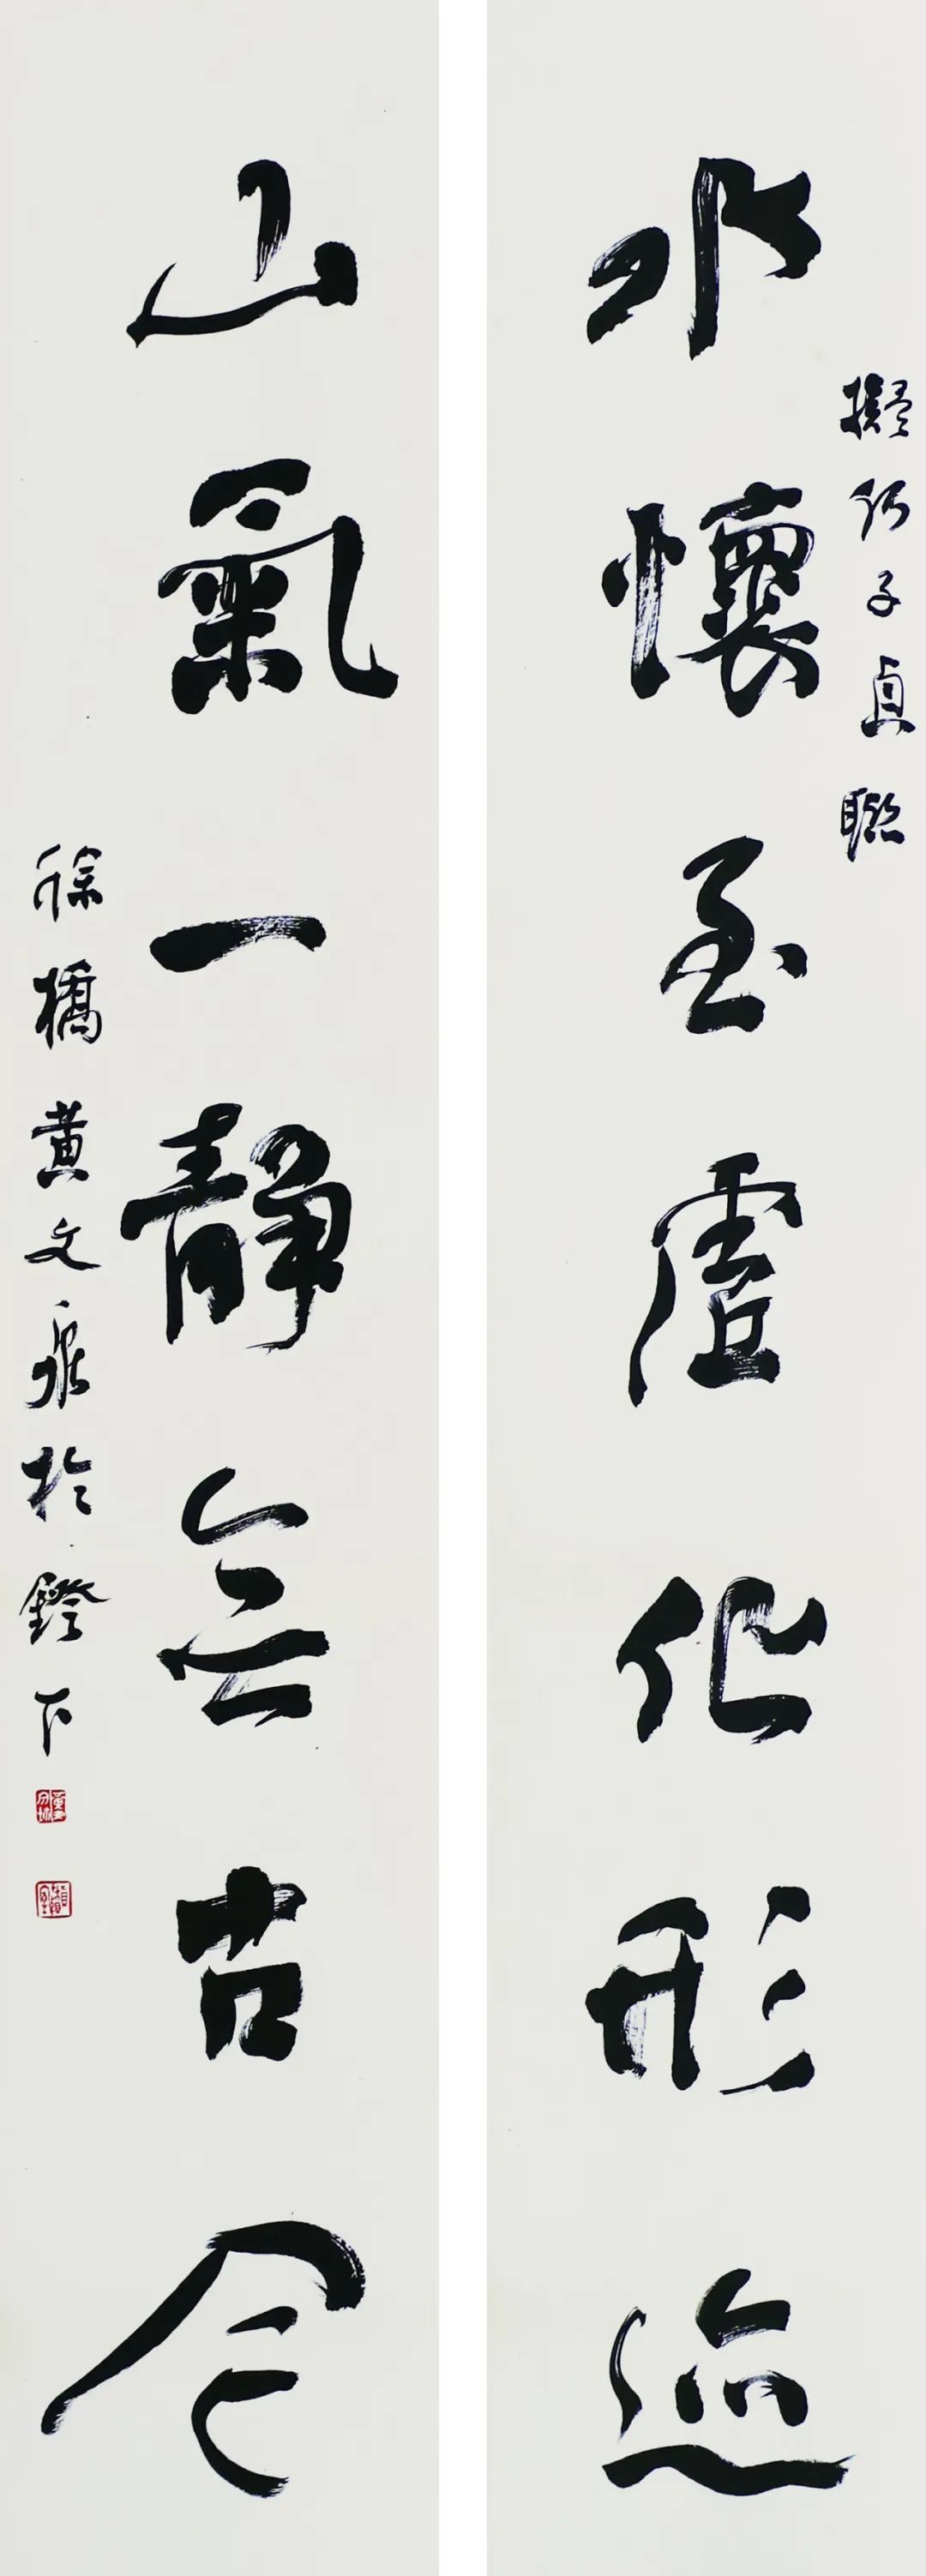 擬何子貞聯
水懷至虛化形迹
山氣一靜無古今
徐橋黃文泉於鐙下